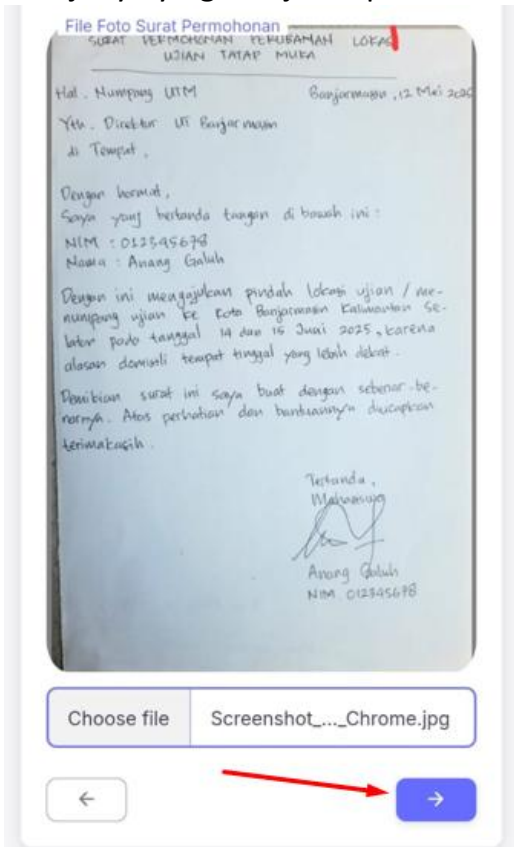 File Foto Surat Permohonan
SURAT PERMOHONAN PERUBAHAN LOKASI
UJIAN TATAP MUKA
Hal . Numpang UTM
Banjarmasin , 12 Mei 2025
Yth . Direktur UT Banjarmasin
di Tempat ,
Dengan hormat ,
Saya yang bertanda tangan di bawah ini :
NIM : 012345678
Nama : Anang Galuh
Dengan ini mengajukan pindah lokasi ujian / me-
numpang ujian ke Kota Banjarmasin Kalimantan Se-
latan pada tanggal 14 dan 15 Juni 2025 , karena
alasan domisili tempat tinggal yang lebih dekat .
Demikian surat ini saya buat dengan sebenar-be-
narnya . Atas perhatian dan bantuannya diucapkan
terimakasih .
Tertanda ,
Mahasiswa
Anang Galuh
NIM 012345678
Choose file
Screenshot_..._Chrome.jpg